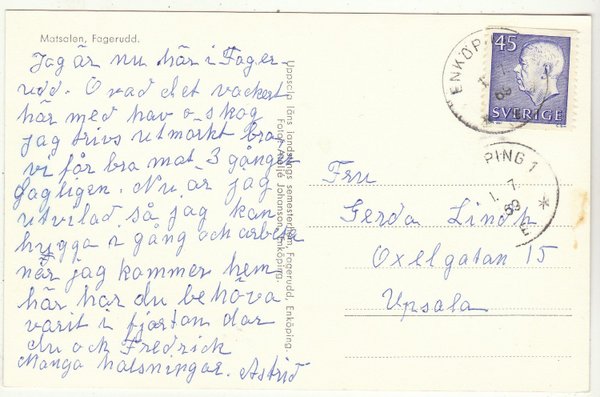 Matsalen, Fagerudd.
Jag är nu här i Fager-
rudd. O vad det vackert
här med hav o skog
jag trivs utmärkt bra
vi får bra mat 3 gånger
dagligen. Nu är jag
utvilad så jag kan
hygga i gång och arbeta
när jag kommer hem
här har du behöva
varit i fjorton dar
du och Fredrick
Många hälsningar. Astrid
Uppsala läns landstings semesterhem, Fagerudd, Enköping.
Foto: Johansson, Enköping.
45
SVERIGE
ENKÖPING
1. 7. 69
PING 1
1. 7. 69
E
*
Fru
Gerda Lindh
Oxelgatan 15
Upsala